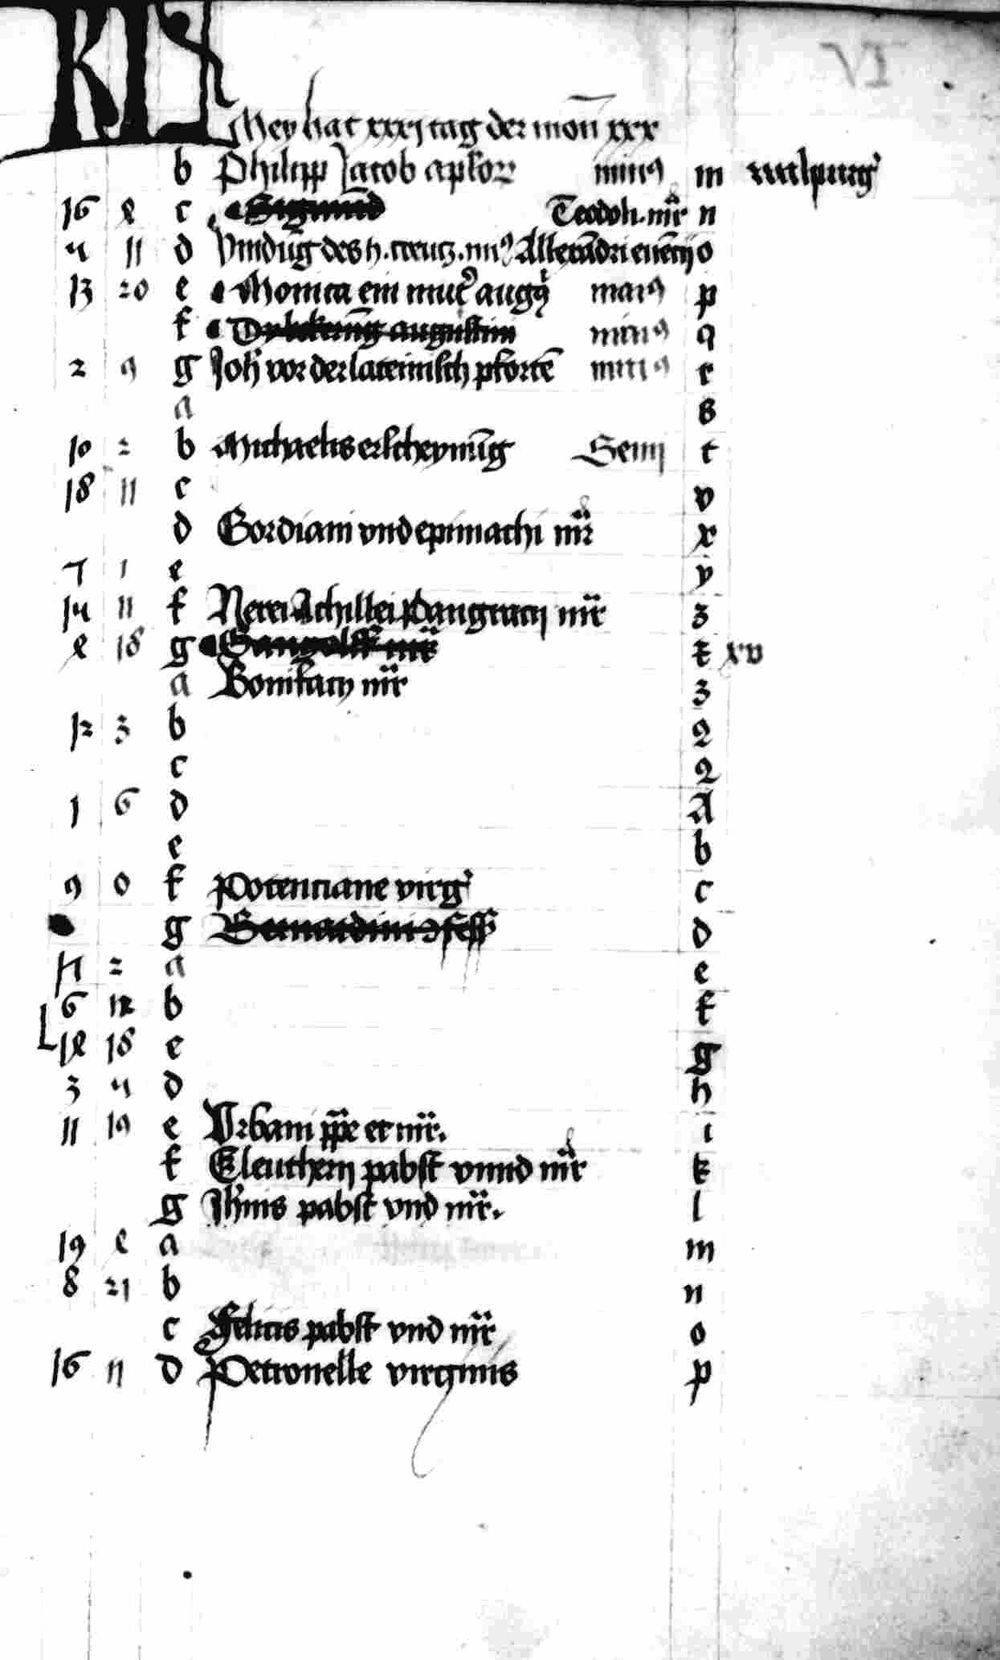 VI
KL Mey hat xxxj tag der mon̄ xxx
b Philipp Jacob aploꝝ minꝰ m walpurg
16 8 c Sigmund Teodoli mr̄ n
4 11 d Vindūg des h. creutz Allexādri euēcij o
13 20 e Monica ein mut̓ augꝰ maiꝰ p
f augustini minꝰ q
2 9 g Joh̄ vor der lateinisch pfortē minꝰ r
a s
10 2 b Michaelis erscheynūg Semj t
18 11 c v
d Gordiani vnd epimachi mr̄ x
7 1 e y
14 11 f Nerei Achillei Pangracij mr̄ z
18 g Gangolff mr̄ xv
a Bonifacij mr̄ 3
12 3 b 2
c 2
1 6 d A
e b
9 0 f Potenciane virg̓ c
g Bernardini ꝯfess d
17 2 a e
6 12 b f
18 c g
3 4 d h
11 19 e Vrbani ppe et mr̄. i
f Eleutherij pabst vnnd mr̄ k
g Joh̄nis pabst vnd mr̄. l
19 8 a m
8 21 b n
c Felicis pabst vnd mr̄ o
16 11 d Petronelle virginis p